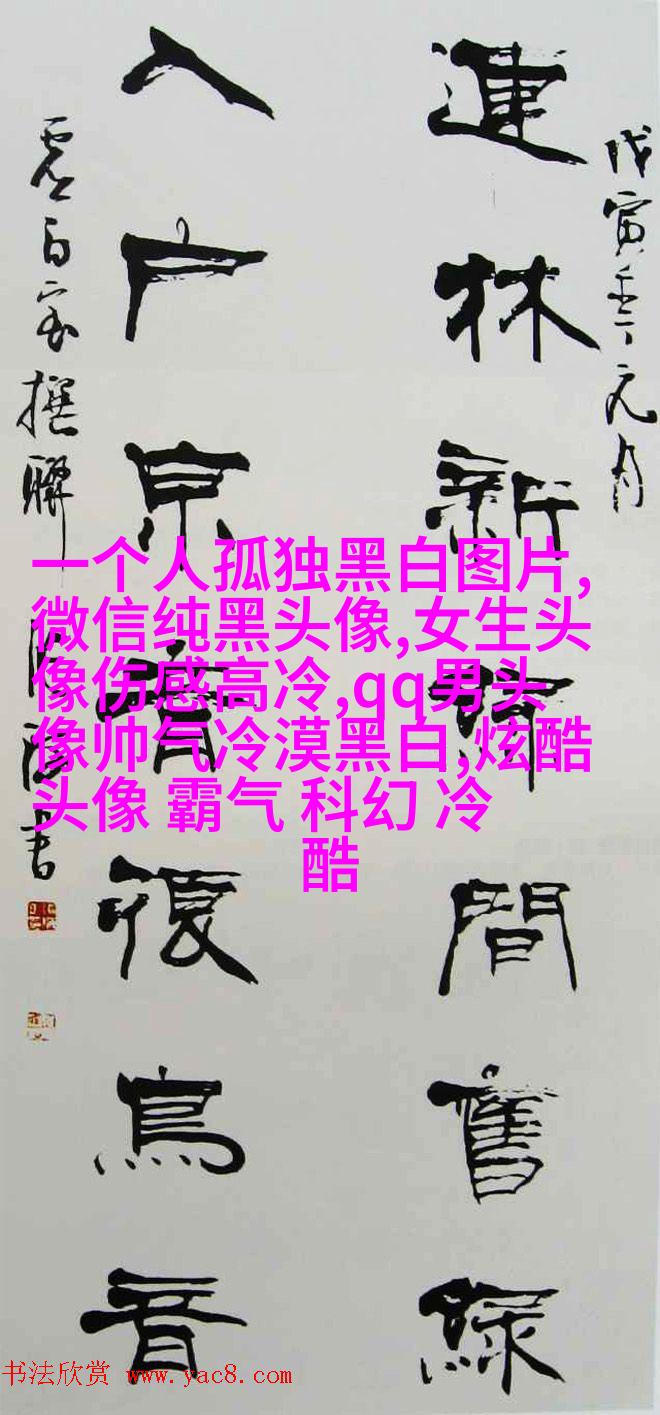 戊寅年元月
連林新間舊綠
入户京晴鳥音
撰聯書
一个人孤独黑白图片,
微信纯黑头像,女生头
像伤感高冷,qq男头
像帅气冷漠黑白,炫酷
头像 霸气 科幻 冷
酷
书法欣赏 www.yac8.com